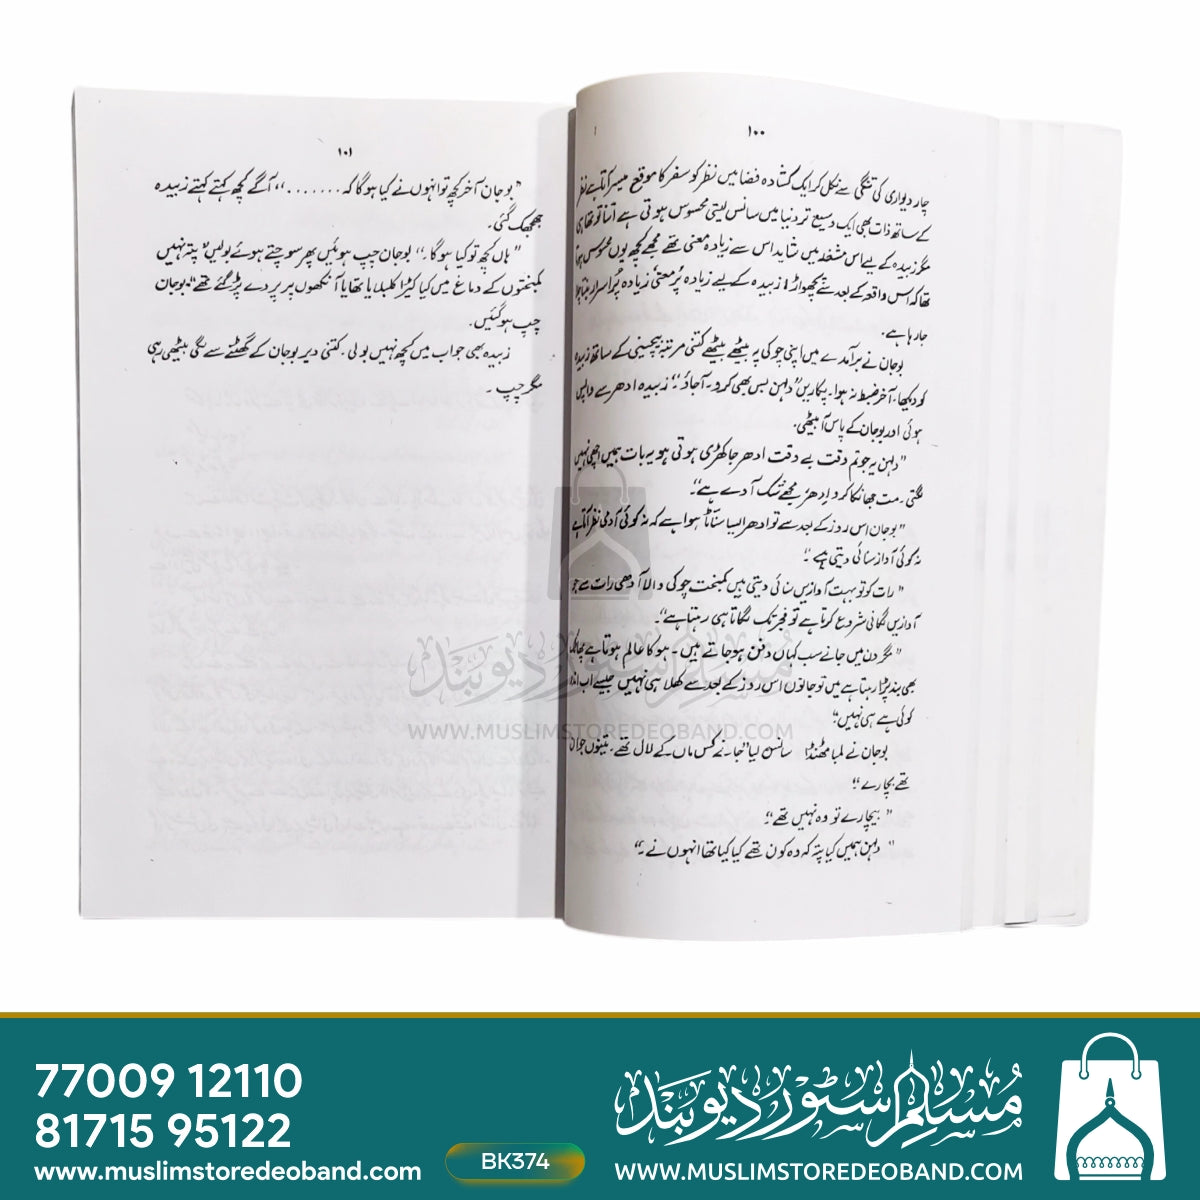 ۱۰۰
چار دیواری کی تنگی سے نکل کر ایک کشادہ فضا میں نظر کو سفر کا موقع میسر آتا ہے نظر
کے ساتھ ذات بھی ایک وسیع تر دنیا میں سانس لیتی محسوس ہوتی ہے اتنا تو تھا ہی
مگر زبیدہ کے لیے اس مشغلہ میں شاید اس سے زیادہ معنی تھے مجھے کچھ یوں محسوس ہوتا
تھا کہ اس واقعہ کے بعد سے پچھواڑا زبیدہ کے لیے زیادہ پُر معنی زیادہ پُر اسرار بنتا چلا
جا رہا ہے۔
بوجان نے برآمدے میں اپنی چوکی پہ بیٹھے بیٹھے کتنی مرتبہ بیچینی کے ساتھ زبیدہ
کو دیکھا۔ آخر ضبط نہ ہوا۔ پکاریں "دلہن بس بھی کرو۔ آجاؤ۔" زبیدہ ادھر سے واپس
ہوئی اور بوجان کے پاس آ بیٹھی۔
"دلہن یہ جو تم وقت بے وقت ادھر جا کھڑی ہوتی ہو یہ بات ہمیں اچھی نہیں
لگتی۔ مت جھانکا کرو ادھر مجھے تو شک آوے ہے"۔
"بوجان اس روز کے بعد سے تو ادھر ایسا سناٹا ہوا ہے کہ نہ کوئی آدمی نظر آتا ہے
نہ کوئی آواز سنائی دیتی ہے۔"
"رات کو تو بہت آوازیں سنائی دیتی ہیں کمبخت چوکی والا آدھی رات سے جو
آوازیں لگانی شروع کرتا ہے تو فجر تک لگاتا ہی رہتا ہے"۔
"مگر دن میں جانے سب کہاں دفن ہو جاتے ہیں۔ ہو کا عالم ہوتا ہے پھاٹک
بھی بند پڑا رہتا ہے میں تو جانوں اس روز کے بعد سے کھلا ہی نہیں جیسے اب اندر
کوئی ہے ہی نہیں"
بوجان نے لمبا ٹھنڈا سانس لیا "جانے کس ماں کے لال تھے۔ تینوں جوان
تھے بچارے۔"
"بیچارے تو وہ نہیں تھے"۔
"دلہن ہمیں کیا پتہ کہ وہ کون تھے کیا کیا تھا انہوں نے۔"
۱۰۱
"بوجان آخر کچھ تو انہوں نے کیا ہوگا کہ ۔۔۔۔۔۔۔" آگے کچھ کہتے کہتے زبیدہ
جھجھک گئی۔
"ہاں کچھ تو کیا ہوگا۔" بوجان چپ ہوئیں پھر سوچتے ہوئے بولیں "پتہ نہیں
کمبختوں کے دماغ میں کیا کیڑا کلبلایا تھا یا آنکھوں پر پردے پڑ گئے تھے" بوجان
چپ ہو گئیں۔
زبیدہ بھی جواب میں کچھ نہیں بولی۔ کتنی دیر بوجان کے گھٹنے سے لگی بیٹھی رہی
مگر چپ۔
مسلم سٹور دیوبند
WWW.MUSLIMSTOREDEOBAND.COM
77009 12110
81715 95122
www.muslimstoredeoband.com
BK374
مسلم سٹور دیوبند
WWW.MUSLIMSTOREDEOBAND.COM